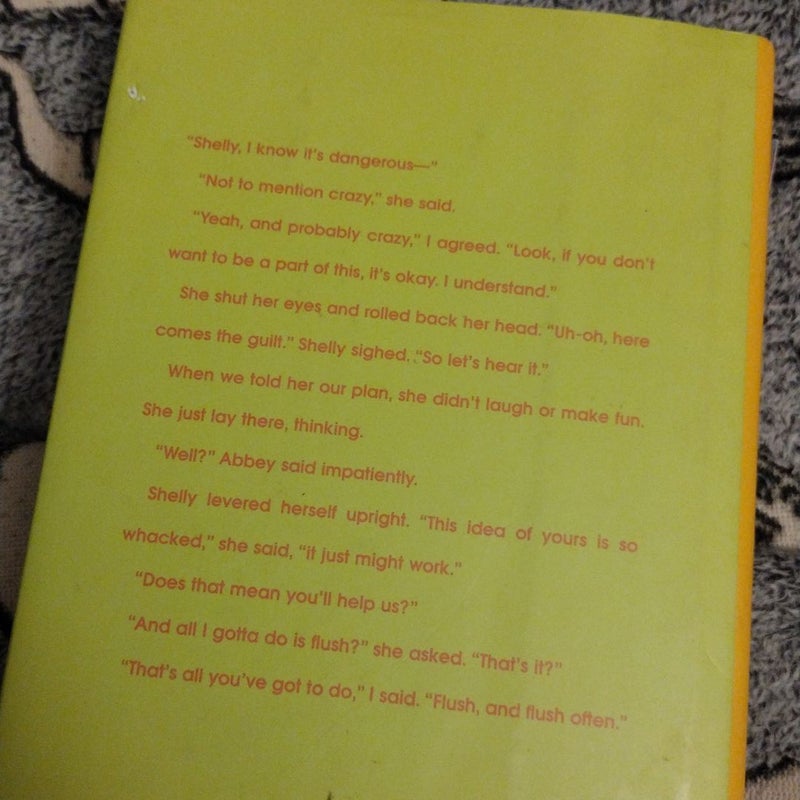 “Shelly, I know it’s dangerous—”
“Not to mention crazy,” she said.
“Yeah, and probably crazy,” I agreed. “Look, if you don’t
want to be a part of this, it’s okay. I understand.”
She shut her eyes and rolled back her head. “Uh-oh, here
comes the guilt.” Shelly sighed. “So let’s hear it.”
When we told her our plan, she didn’t laugh or make fun.
She just lay there, thinking.
“Well?” Abbey said impatiently.
Shelly levered herself upright. “This idea of yours is so
whacked,” she said, “it just might work.”
“Does that mean you’ll help us?”
“And all I gotta do is flush?” she asked. “That’s it?”
“That’s all you’ve got to do,” I said. “Flush, and flush often.”